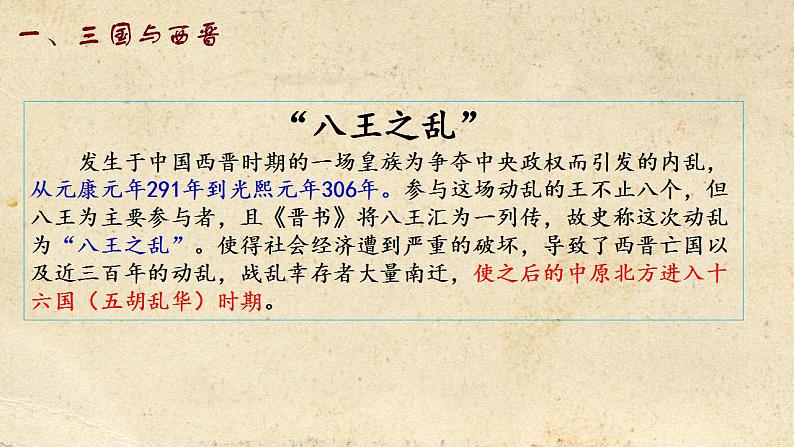 一、三国与西晋
“八王之乱”
发生于中国西晋时期的一场皇族为争夺中央政权而引发的内乱，
从元康元年291年到光熙元年306年。参与这场动乱的王不止八个，但
八王为主要参与者，且《晋书》将八王汇为一列传，故史称这次动乱
为“八王之乱”。使得社会经济遭到严重的破坏，导致了西晋亡国以
及近三百年的动乱，战乱幸存者大量南迁，使之后的中原北方进入十
六国（五胡乱华）时期。